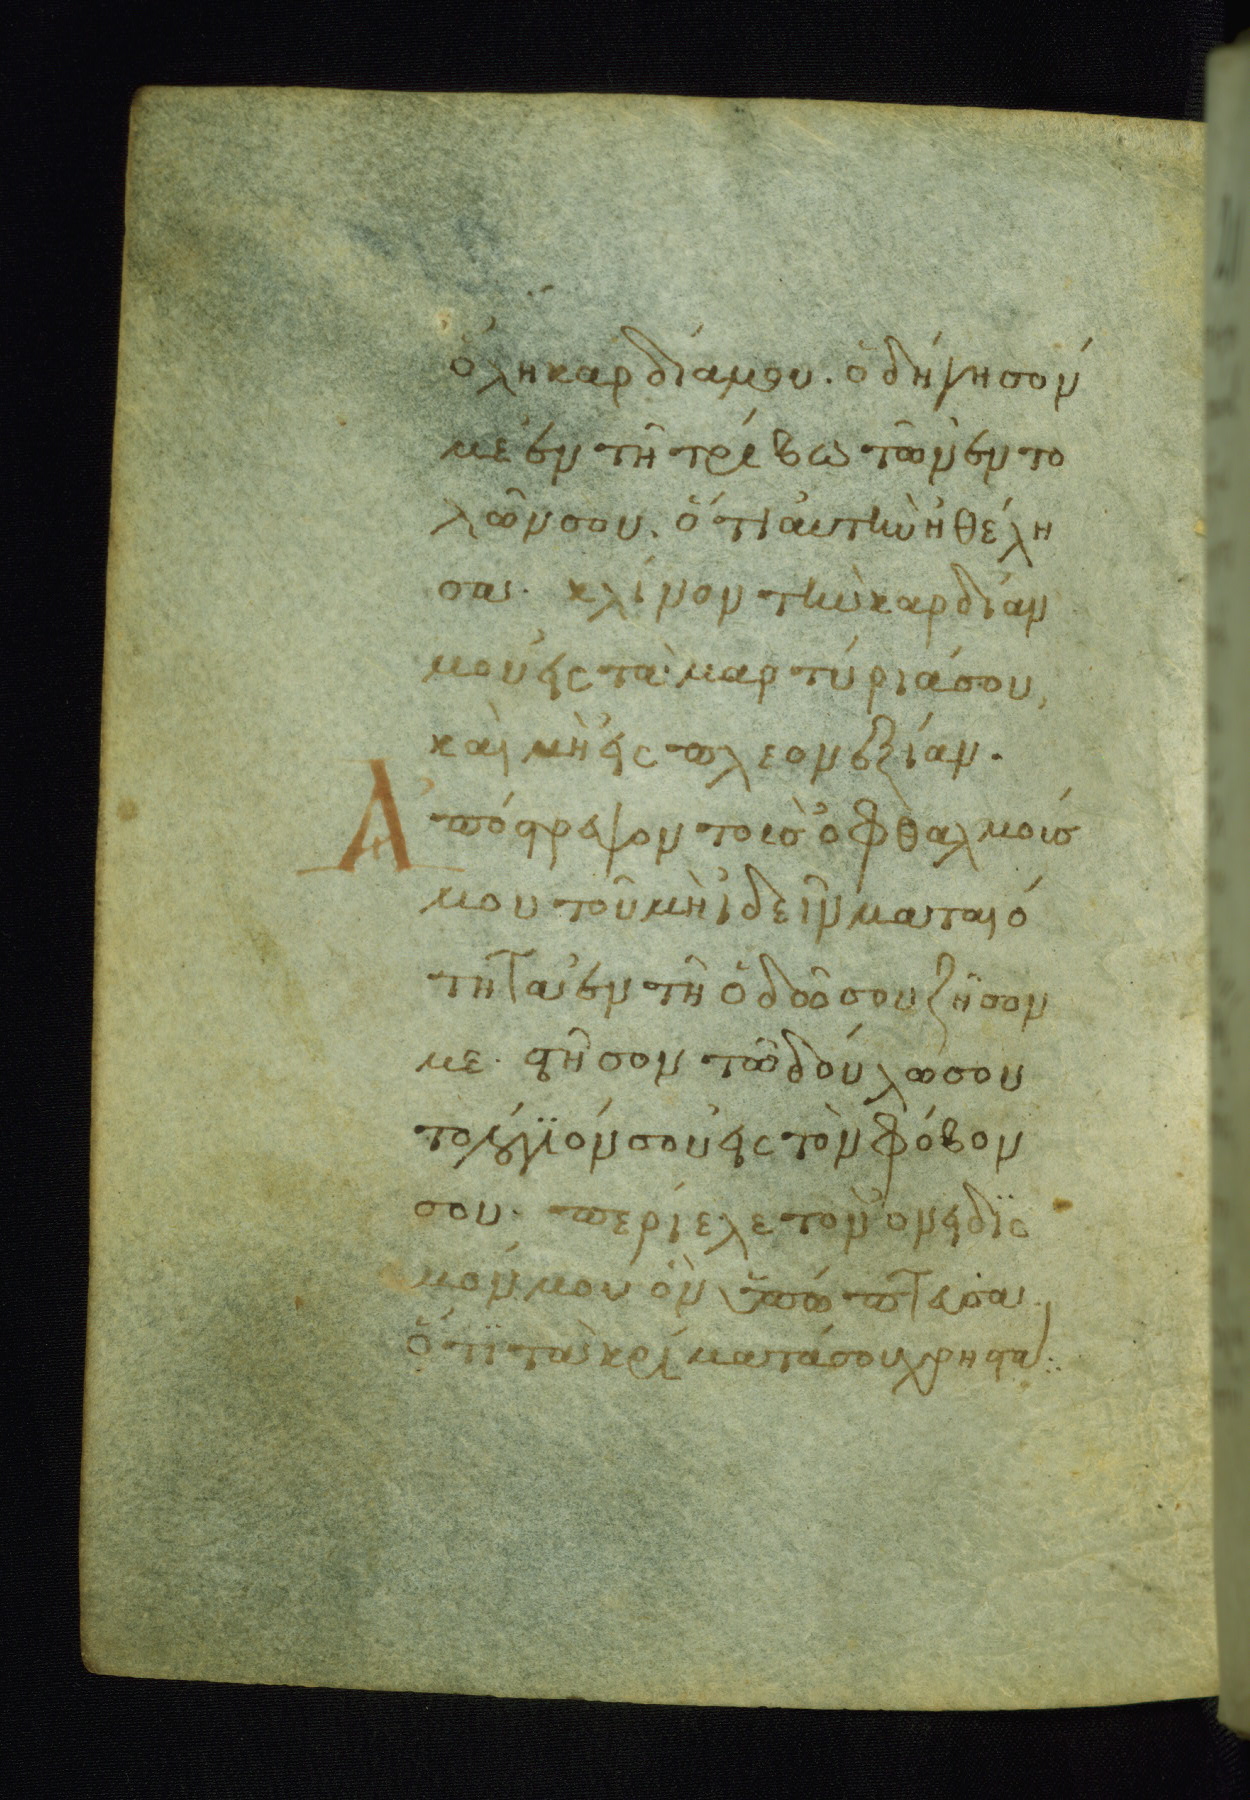 ὅλη καρδία μου. ὁδήγησόν
με ἐν τῇ τρίβω τῶν ἐντο
λῶν σου. ὅτι αὐτὴν ἠθέλη
σα. κλίνον τὴν καρδίαν
μου εἰς τὰ μαρτύριά σου,
καὶ μὴ εἰς πλεονεξίαν.
Ἀπόστρεψον τοὺς ὀφθαλμούς
μου τοῦ μὴ ἰδεῖν ματαιό
τητα ἐν τῇ ὁδῶ σου ζῆσον
με. στῆσον τῶ δούλω σου
τὸ λόγϊόν σου εἰς τὸν φόβον
σου. περίελε τὸν ὀνειδϊσ
μόν μου ὃν ὑπώπτευσα.
ὅτϊ τὰ κρίματά σου χρηστά: